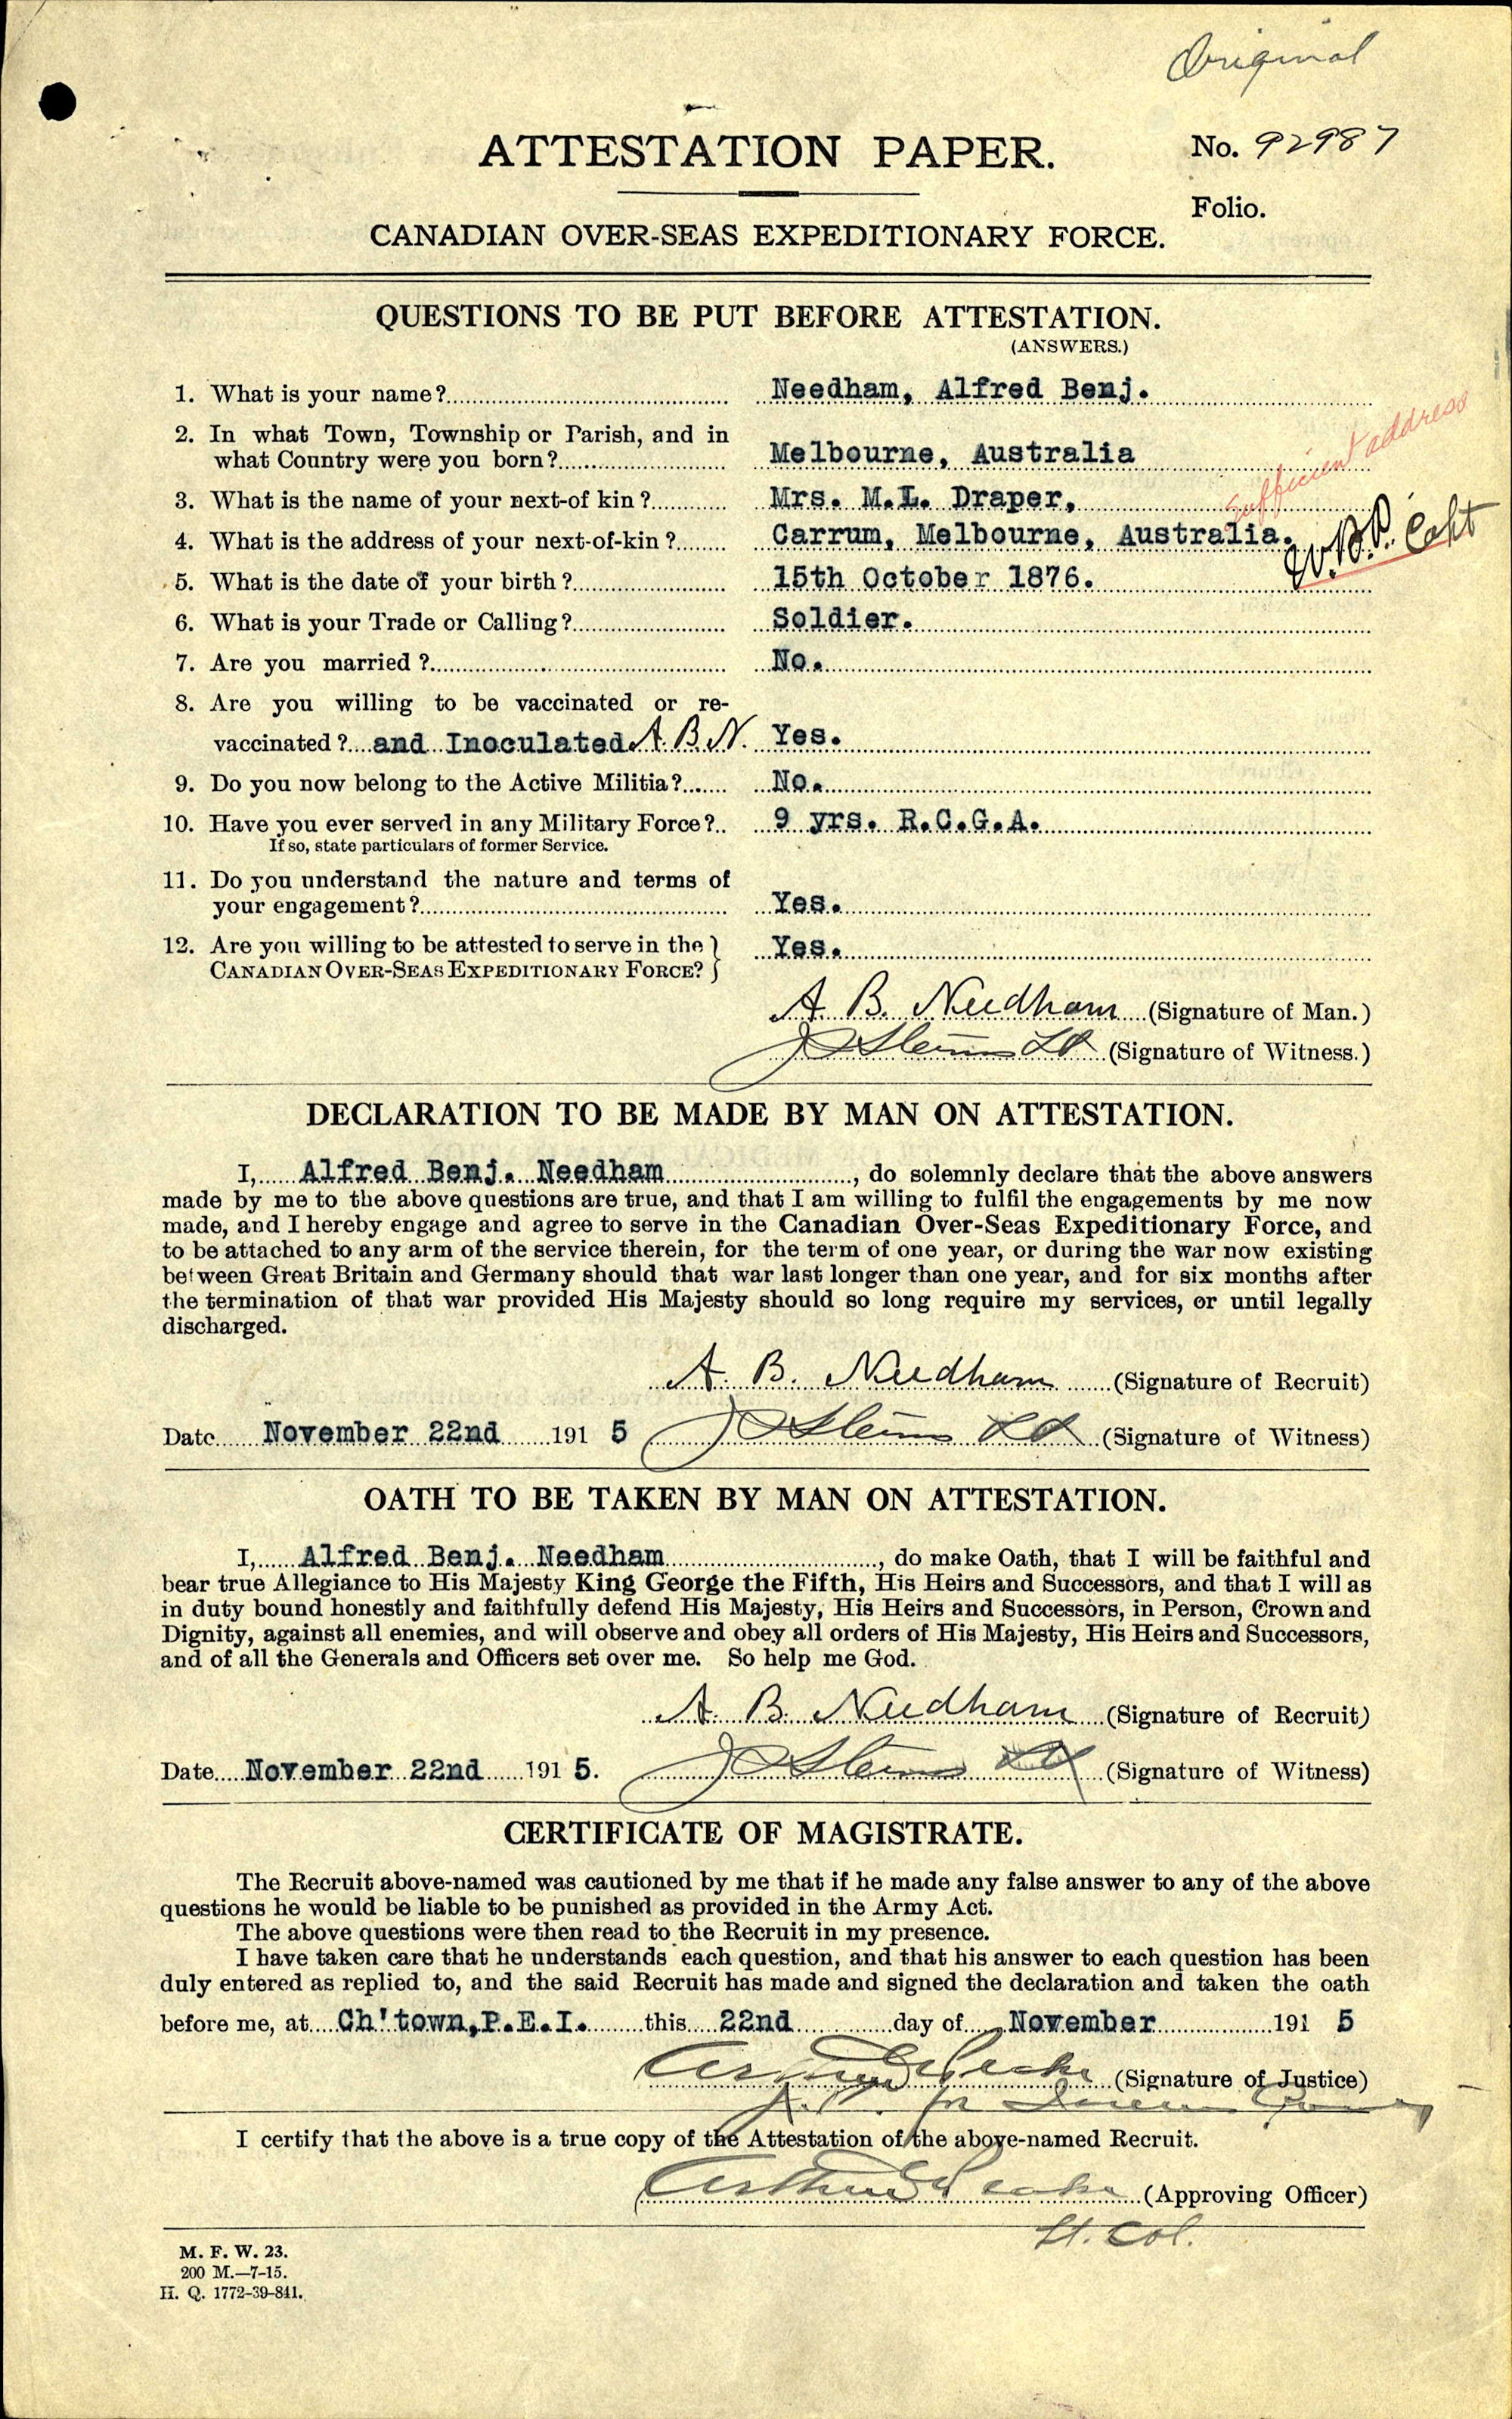 Original
ATTESTATION PAPER.
No. 92987
Folio.
CANADIAN OVER-SEAS EXPEDITIONARY FORCE.
QUESTIONS TO BE PUT BEFORE ATTESTATION.
(ANSWERS.)
1. What is your name? Needham, Alfred Benj.
2. In what Town, Township or Parish, and in
what Country were you born? Melbourne, Australia
Sufficient address
3. What is the name of your next-of kin? Mrs. M.L. Draper,
4. What is the address of your next-of-kin? Carrum, Melbourne, Australia.
W.B.P. Capt
5. What is the date of your birth? 15th October 1876.
6. What is your Trade or Calling? Soldier.
7. Are you married? No.
8. Are you willing to be vaccinated or re-
vaccinated? and Inoculated A. B. N. Yes.
9. Do you now belong to the Active Militia? No.
10. Have you ever served in any Military Force? 9 yrs. R.C.G.A.
If so, state particulars of former Service.
11. Do you understand the nature and terms of
your engagement? Yes.
12. Are you willing to be attested to serve in the } Yes.
CANADIAN OVER-SEAS EXPEDITIONARY FORCE?
A. B. Needham (Signature of Man.)
Lt (Signature of Witness.)
DECLARATION TO BE MADE BY MAN ON ATTESTATION.
I, Alfred Benj. Needham, do solemnly declare that the above answers
made by me to the above questions are true, and that I am willing to fulfil the engagements by me now
made, and I hereby engage and agree to serve in the Canadian Over-Seas Expeditionary Force, and
to be attached to any arm of the service therein, for the term of one year, or during the war now existing
between Great Britain and Germany should that war last longer than one year, and for six months after
the termination of that war provided His Majesty should so long require my services, or until legally
discharged.
A. B. Needham (Signature of Recruit)
Date November 22nd 191 5 Lt (Signature of Witness)
OATH TO BE TAKEN BY MAN ON ATTESTATION.
I, Alfred Benj. Needham, do make Oath, that I will be faithful and
bear true Allegiance to His Majesty King George the Fifth, His Heirs and Successors, and that I will as
in duty bound honestly and faithfully defend His Majesty, His Heirs and Successors, in Person, Crown and
Dignity, against all enemies, and will observe and obey all orders of His Majesty, His Heirs and Successors,
and of all the Generals and Officers set over me. So help me God.
A. B. Needham (Signature of Recruit)
Date November 22nd 191 5. Lt (Signature of Witness)
CERTIFICATE OF MAGISTRATE.
The Recruit above-named was cautioned by me that if he made any false answer to any of the above
questions he would be liable to be punished as provided in the Army Act.
The above questions were then read to the Recruit in my presence.
I have taken care that he understands each question, and that his answer to each question has been
duly entered as replied to, and the said Recruit has made and signed the declaration and taken the oath
before me, at Ch'town, P.E.I. this 22nd day of November 191 5
Arthur Peake (Signature of Justice)
J. P. for Queens County
I certify that the above is a true copy of the Attestation of the above-named Recruit.
Arthur Peake (Approving Officer)
Lt. Col.
M. F. W. 23.
200 M.—7-15.
H. Q. 1772-39-841.